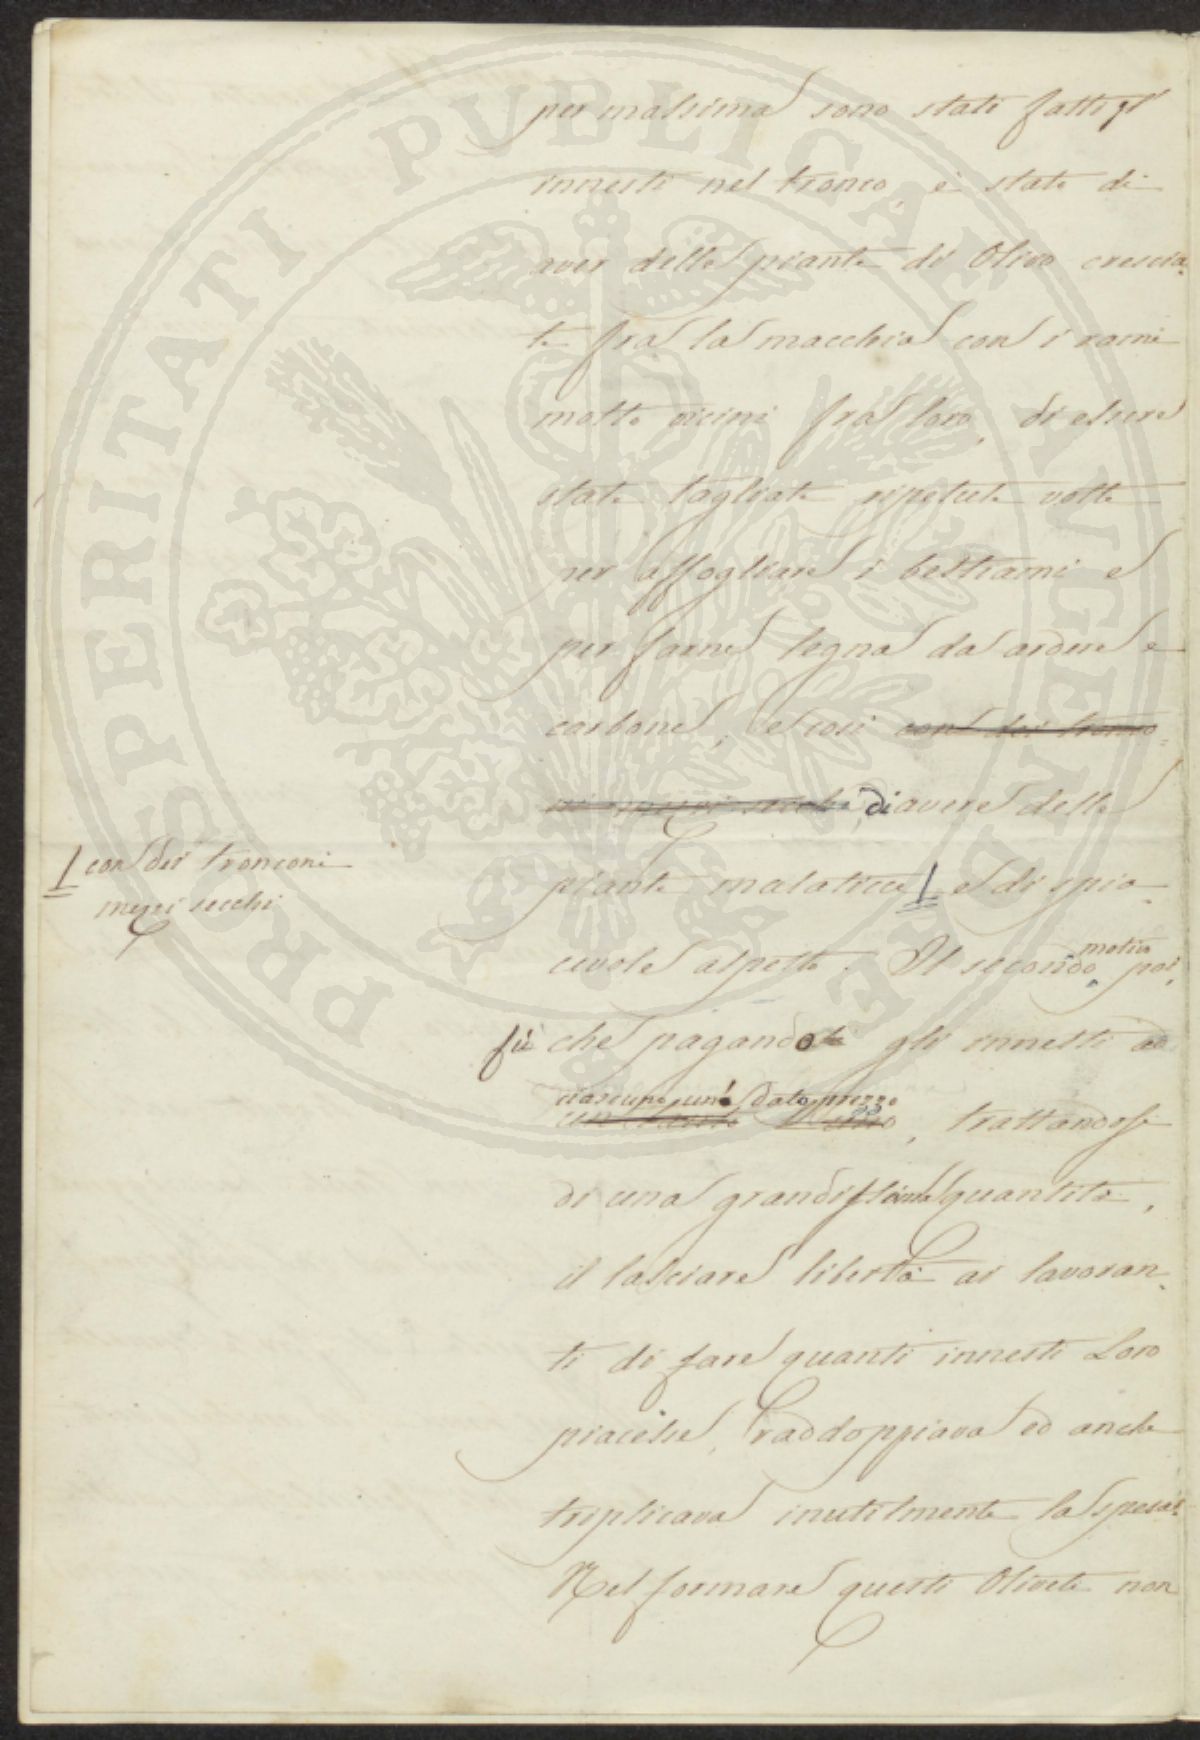 per massima sono stati fatti gl'
innesti nel tronco, è stato di
aver delle piante di Olivo crescia-
te fra la macchia con i rami
molto vicini fra loro, di essere
state tagliate ripetute volte
per affogliare i bestiami e
per farne legna da ardere e
carbone, e così con dei tronco-
ni mezzi secchi, di avere delle
piante malaticce | e di spia-
cevole aspetto. Il secondo motivo poi,
fù che pagandosi gli innesti a
ciascuno un dato prezzo
, trattandosi
di una grandissima quantità,
il lasciare libertà ai lavoran-
ti di fare quanti innesti Loro
piacesse, raddoppiava ed anche
triplicava inutilmente la spesa.
Nel formare questi Oliveti non
| con dei tronconi
mezzi secchi
PROSPERITATI PUBLICAE AUGENDAE